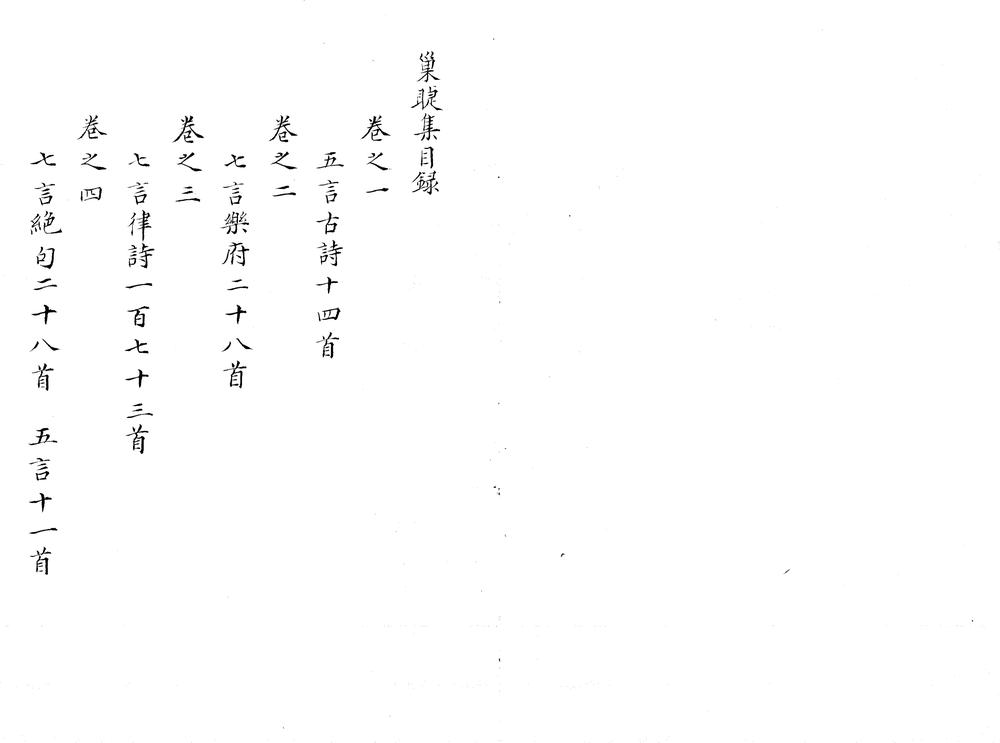 巢睫集目録
卷之一
五言古詩十四首
卷之二
七言樂府二十八首
卷之三
七言律詩一百七十三首
卷之四
七言絕句二十八首　五言十一首